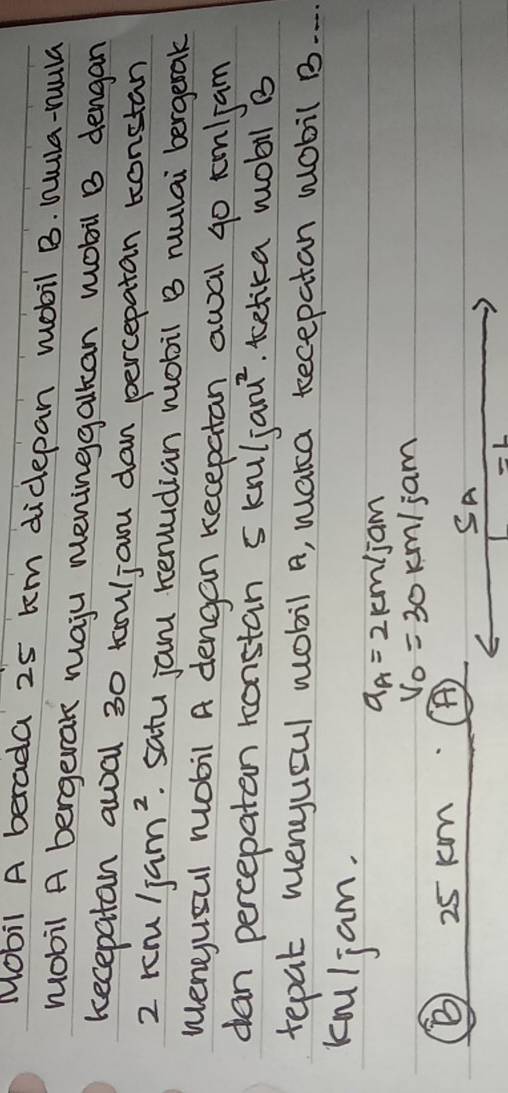 Mobil A berada 25 km didepan mobil B. Mula-mula
mobil A bergerak maju meninggalkan mobil B dengan
kecepatan awal 30 km/jam dan percepatan konstan
2 km/jam². satu jam kemudian mobil B mulai bergerak
menyusul mobil A dengan kecepatan awal 40 km/jam
dan percepatan konstan 5 km/jam². ketika mobil B
tepat menyusul mobil A, maka kecepatan mobil B....
km/jam.
aA = 2 km/jam
Vo = 30 km/jam
B 25 km . A SA